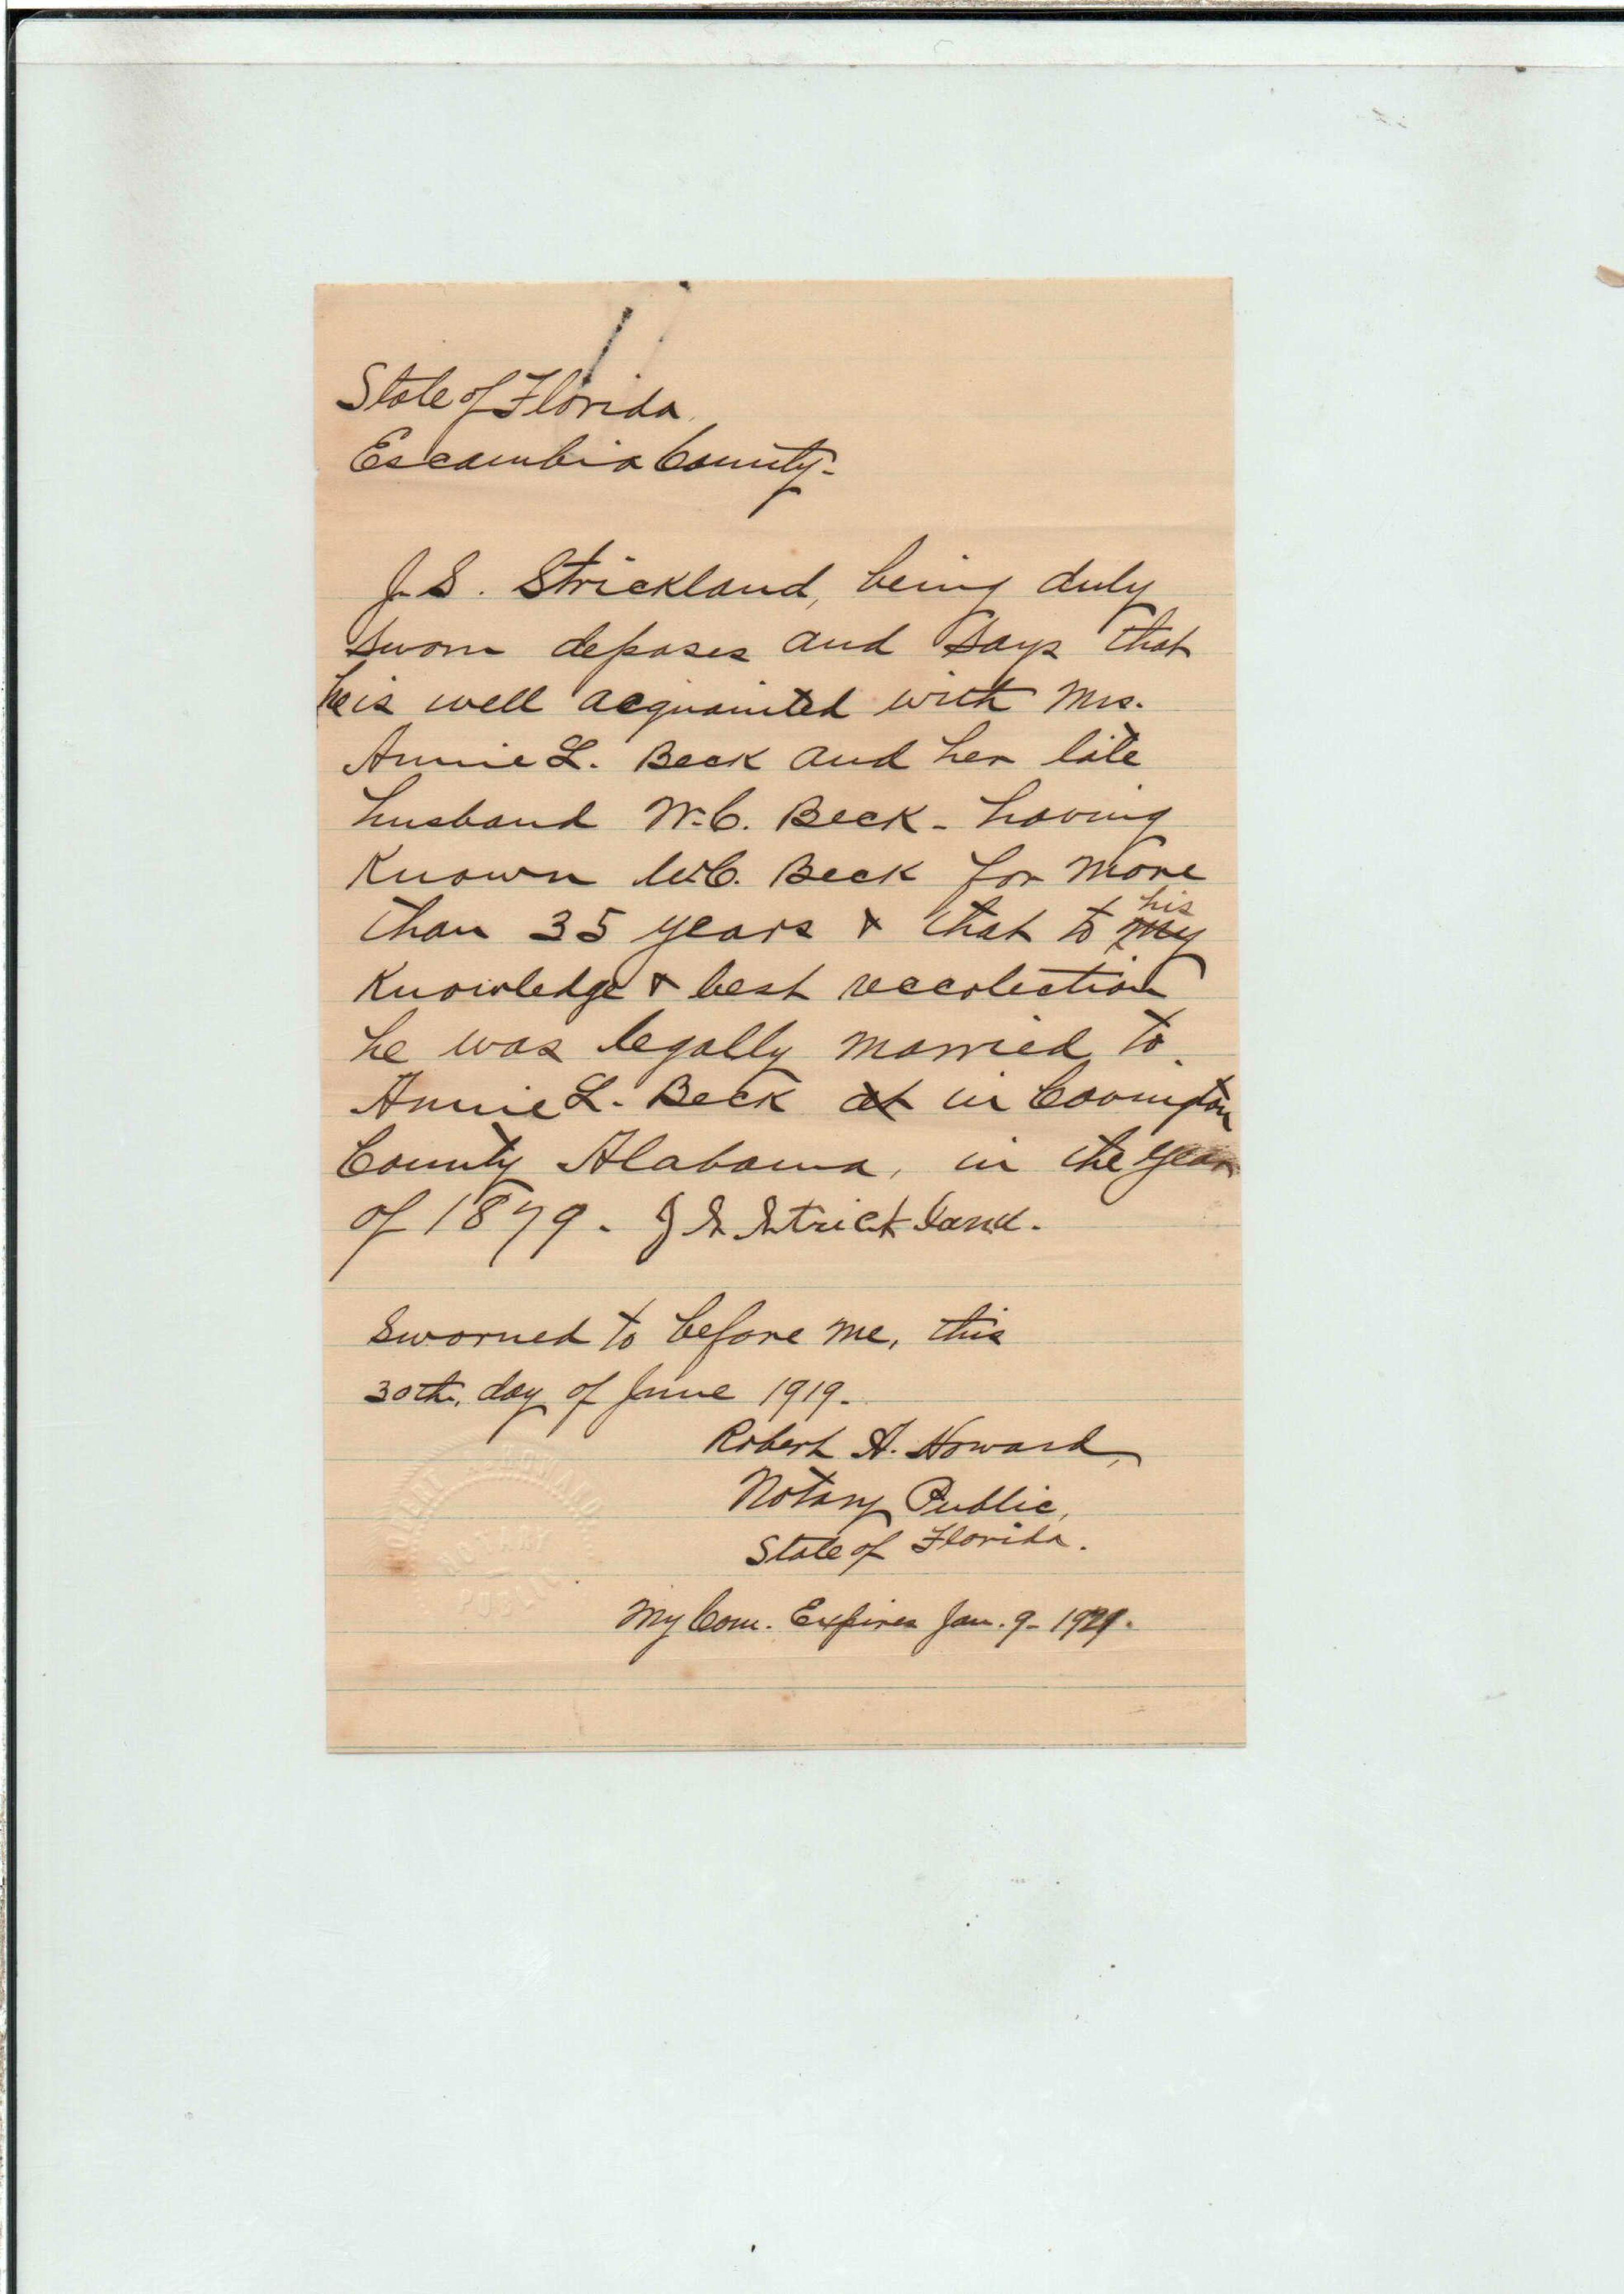 State of Florida.
Escambia County-
J. S. Strickland, being duly
sworn deposes and says that
he is well acquainted with Mrs.
Annie L. Beck and her late
husband W. C. Beck - having
known W. C. Beck for more
his
than 35 years & that to my
knowledge & best reccolection
he was legally married to
Annie L. Beck at in Covington
County Alabama, in the year
of 1879. J S Strickland.
Sworned to before me, this
30th. day of June 1919.
Robert A. Howard,
Notary Public,
State of Florida.
My Com. Expires Jan. 9- 1921.
ROBERT A. HOWARD
NOTARY
PUBLIC